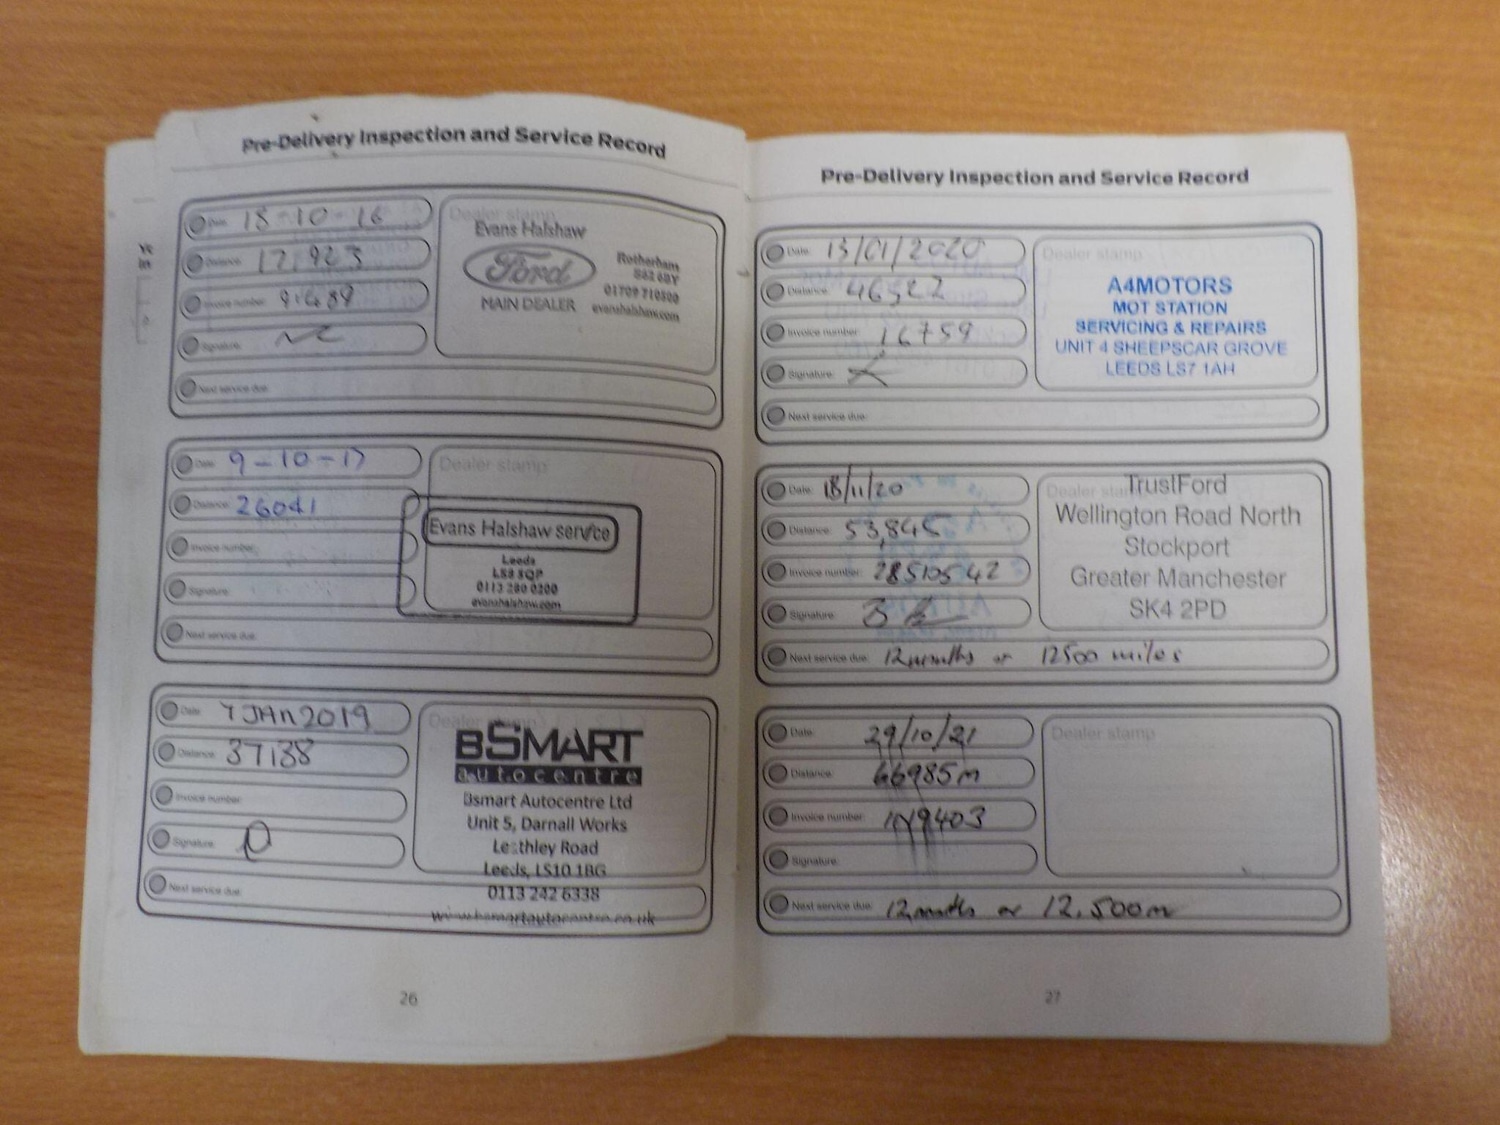 Pre-Delivery Inspection and Service Record
Date: 18-10-16
Distance: 17,923
Invoice number: 91489
Signature:
Next service due:
Dealer stamp
Evans Halshaw
Ford
MAIN DEALER
Rotherham
S62 6BY
01709 710500
evanshalshaw.com
Date: 9-10-17
Distance: 26041
Invoice number:
Signature:
Next service due:
Dealer stamp
Evans Halshaw service
Leeds
0113 280 0200
evanshalshaw.com
Date: 7 JAN 2019
Distance: 37138
Invoice number:
Signature:
Next service due:
Dealer stamp
BSMART
autocentre
Bsmart Autocentre Ltd
Unit 5, Darnall Works
Leathley Road
Leeds, LS10 1BG
0113 242 6338
www.bsmartautocentre.co.uk
26
Pre-Delivery Inspection and Service Record
Date: 13/01/2020
Distance: 46522
Invoice number: 16759
Signature:
Next service due:
Dealer stamp
A4MOTORS
MOT STATION
SERVICING & REPAIRS
UNIT 4 SHEEPSCAR GROVE
LEEDS LS7 1AH
Date: 18/11/20
Distance: 53,845
Invoice number: 28510542
Signature:
Next service due: 12 months or 12500 miles
Dealer stamp
TrustFord
Wellington Road North
Stockport
Greater Manchester
SK4 2PD
Date: 29/10/21
Distance: 66985m
Invoice number: 119403
Signature:
Next service due: 12 months or 12,500m
Dealer stamp
27